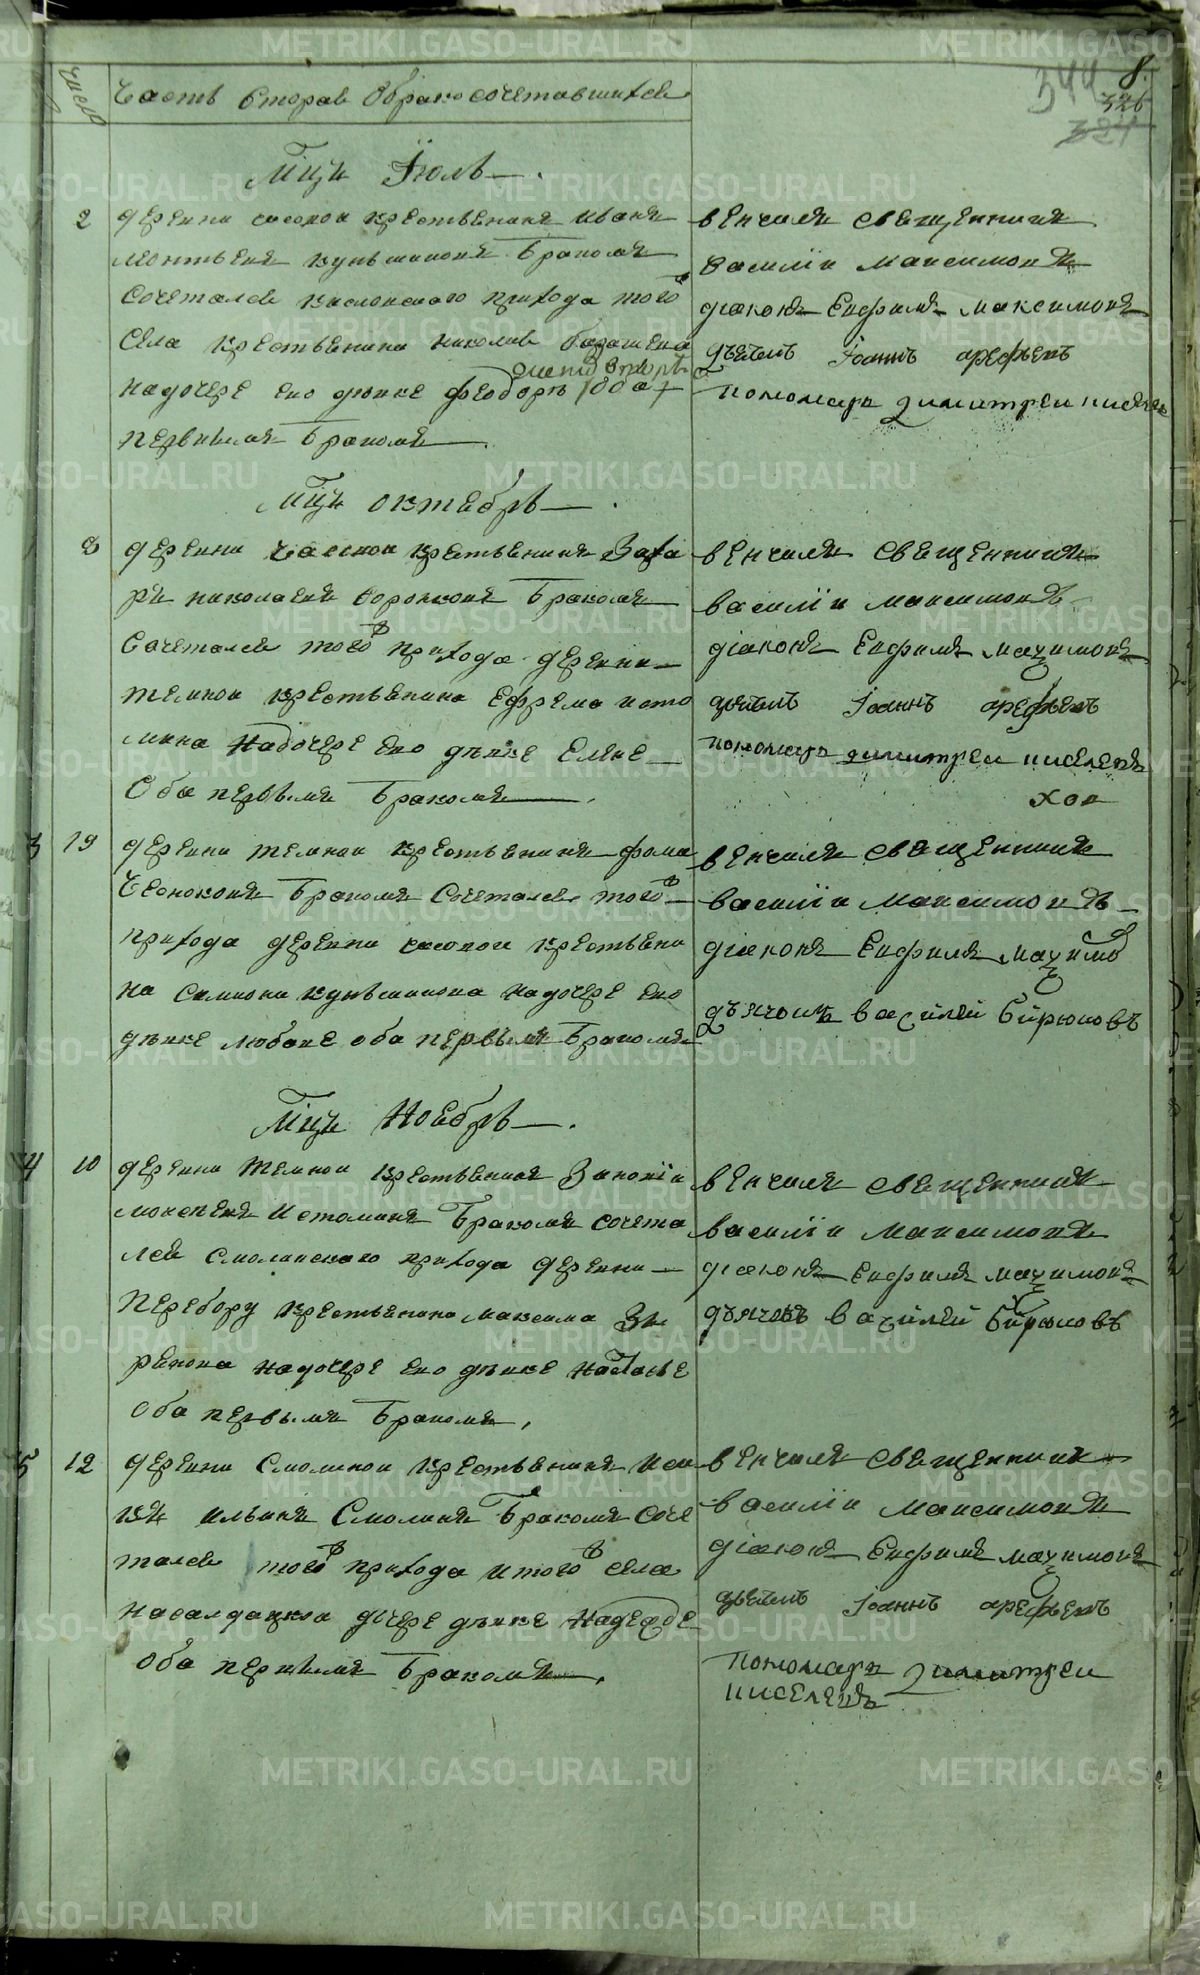 число
Часть вторая обракосочетавшихся
8
344
326
324
Мцъ Июль
2
деревни часовои крестьянинъ иванъ
леонтьевъ кунгинионъ бракомъ
сочетался кисловскаго прихода того
села крестьянина николая
надочере его девке феодоре оба
первымъ бракомъ
венчалъ священникъ
василiи максимовъ
дiаконъ Ефимъ максимовъ
дьячекъ Iоаннъ арефьевъ
пономарь димитреи киселевъ
Мцъ октебрь
8
деревни часовои крестьянинъ Заха
ръ николаевъ воронковъ бракомъ
сочетался того прихода деревни
темнои крестьянина Ефрема исто
мина надочере его девке Елене
Оба первымъ бракомъ
венчалъ священникъ
василiи максимовъ
дiаконъ Ефимъ максимовъ
дьячекъ Iоаннъ арефьевъ
пономарь димитреи киселевъ
3
19
деревни темнои крестьянинъ фома
Чесноковъ бракомъ сочетался того
прихода деревни часовои крестьяни
на симиона надочере его
девке любаве оба первымъ бракомъ
венчалъ священникъ
василiи максимовъ
дiаконъ Ефимъ максимовъ
дъячокъ василей бирюковъ
Мцъ Ноебрь
4
10
деревни темнои крестьянинъ Зиновiи
моисеевъ истоминъ бракомъ сочета
лся смолинскаго прихода деревни
Перебору крестьянина максима Зы
рянова надочере его девке настасье
оба первымъ бракомъ
венчалъ священникъ
василiи максимовъ
дiаконъ Ефимъ максимовъ
дъячекъ василей бирюковъ
5
12
деревни Смолинои крестьянинъ иса
къ ильинъ Смолинъ бракомъ соче
тался того прихода и того села
насалдацкои дочере девке надежде
оба первымъ бракомъ
венчалъ священникъ
василiи максимовъ
дiаконъ Ефимъ максимовъ
дьячекъ Iоаннъ арефьевъ
пономарь димитреи
киселевъ
METRIKI.GASO-URAL.RU